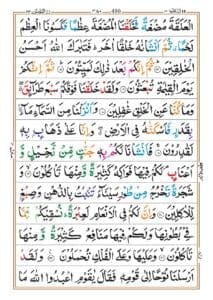 الْعَلَقَةَ مُضْغَةً فَخَلَقْنَا الْمُضْغَةَ عِظٰمًا فَكَسَوْنَا الْعِظٰمَ
لَحْمًا ثُمَّ اَنْشَاْنٰهُ خَلْقًا اٰخَرَ فَتَبٰرَكَ اللّٰهُ اَحْسَنُ
الْخٰلِقِيْنَ ثُمَّ اِنَّكُمْ بَعْدَ ذٰلِكَ لَمَيِّتُوْنَ ثُمَّ اِنَّكُمْ
يَوْمَ الْقِيٰمَةِ تُبْعَثُوْنَ وَلَقَدْ خَلَقْنَا فَوْقَكُمْ سَبْعَ طَرَآئِقَ
وَمَا كُنَّا عَنِ الْخَلْقِ غٰفِلِيْنَ وَاَنْزَلْنَا مِنَ السَّمَآءِ مَآءً
بِقَدَرٍ فَاَسْكَنّٰهُ فِي الْاَرْضِ وَاِنَّا عَلٰى ذَهَابٍ بِهٖ
لَقٰدِرُوْنَ فَاَنْشَاْنَا لَكُمْ بِهٖ جَنّٰتٍ مِّنْ نَّخِيْلٍ وَّ
اَعْنَابٍ لَكُمْ فِيْهَا فَوَاكِهُ كَثِيْرَةٌ وَّمِنْهَا تَاْكُلُوْنَ وَ
شَجَرَةً تَخْرُجُ مِنْ طُوْرِ سَيْنَآءَ تَنْبُتُ بِالدُّهْنِ وَصِبْغٍ
لِّلْاٰكِلِيْنَ وَاِنَّ لَكُمْ فِي الْاَنْعَامِ لَعِبْرَةً نُسْقِيْكُمْ مِّمَّا
فِيْ بُطُوْنِهَا وَلَكُمْ فِيْهَا مَنَافِعُ كَثِيْرَةٌ وَّمِنْهَا
تَاْكُلُوْنَ وَعَلَيْهَا وَعَلَى الْفُلْكِ تُحْمَلُوْنَ وَلَقَدْ
اَرْسَلْنَا نُوْحًا اِلٰى قَوْمِهٖ فَقَالَ يٰقَوْمِ اعْبُدُوا اللّٰهَ مَا